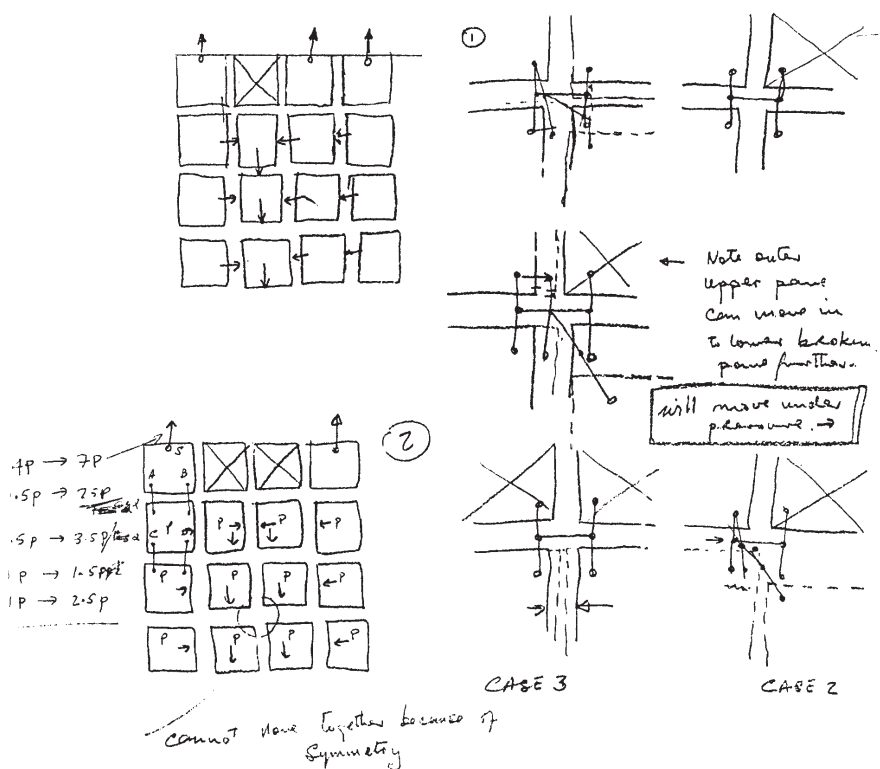 1
Note outer
upper pane
can move in
to lower broken
pane further.
will move under
pressure. →
2
S
A B
.4p → 7p
.5p → 2.5p
C P
P P P
.5p → 3.5p
1p → 1.5p
P P P P
1p → 2.5p
P P P P
CASE 3
CASE 2
cannot move together because of
symmetry